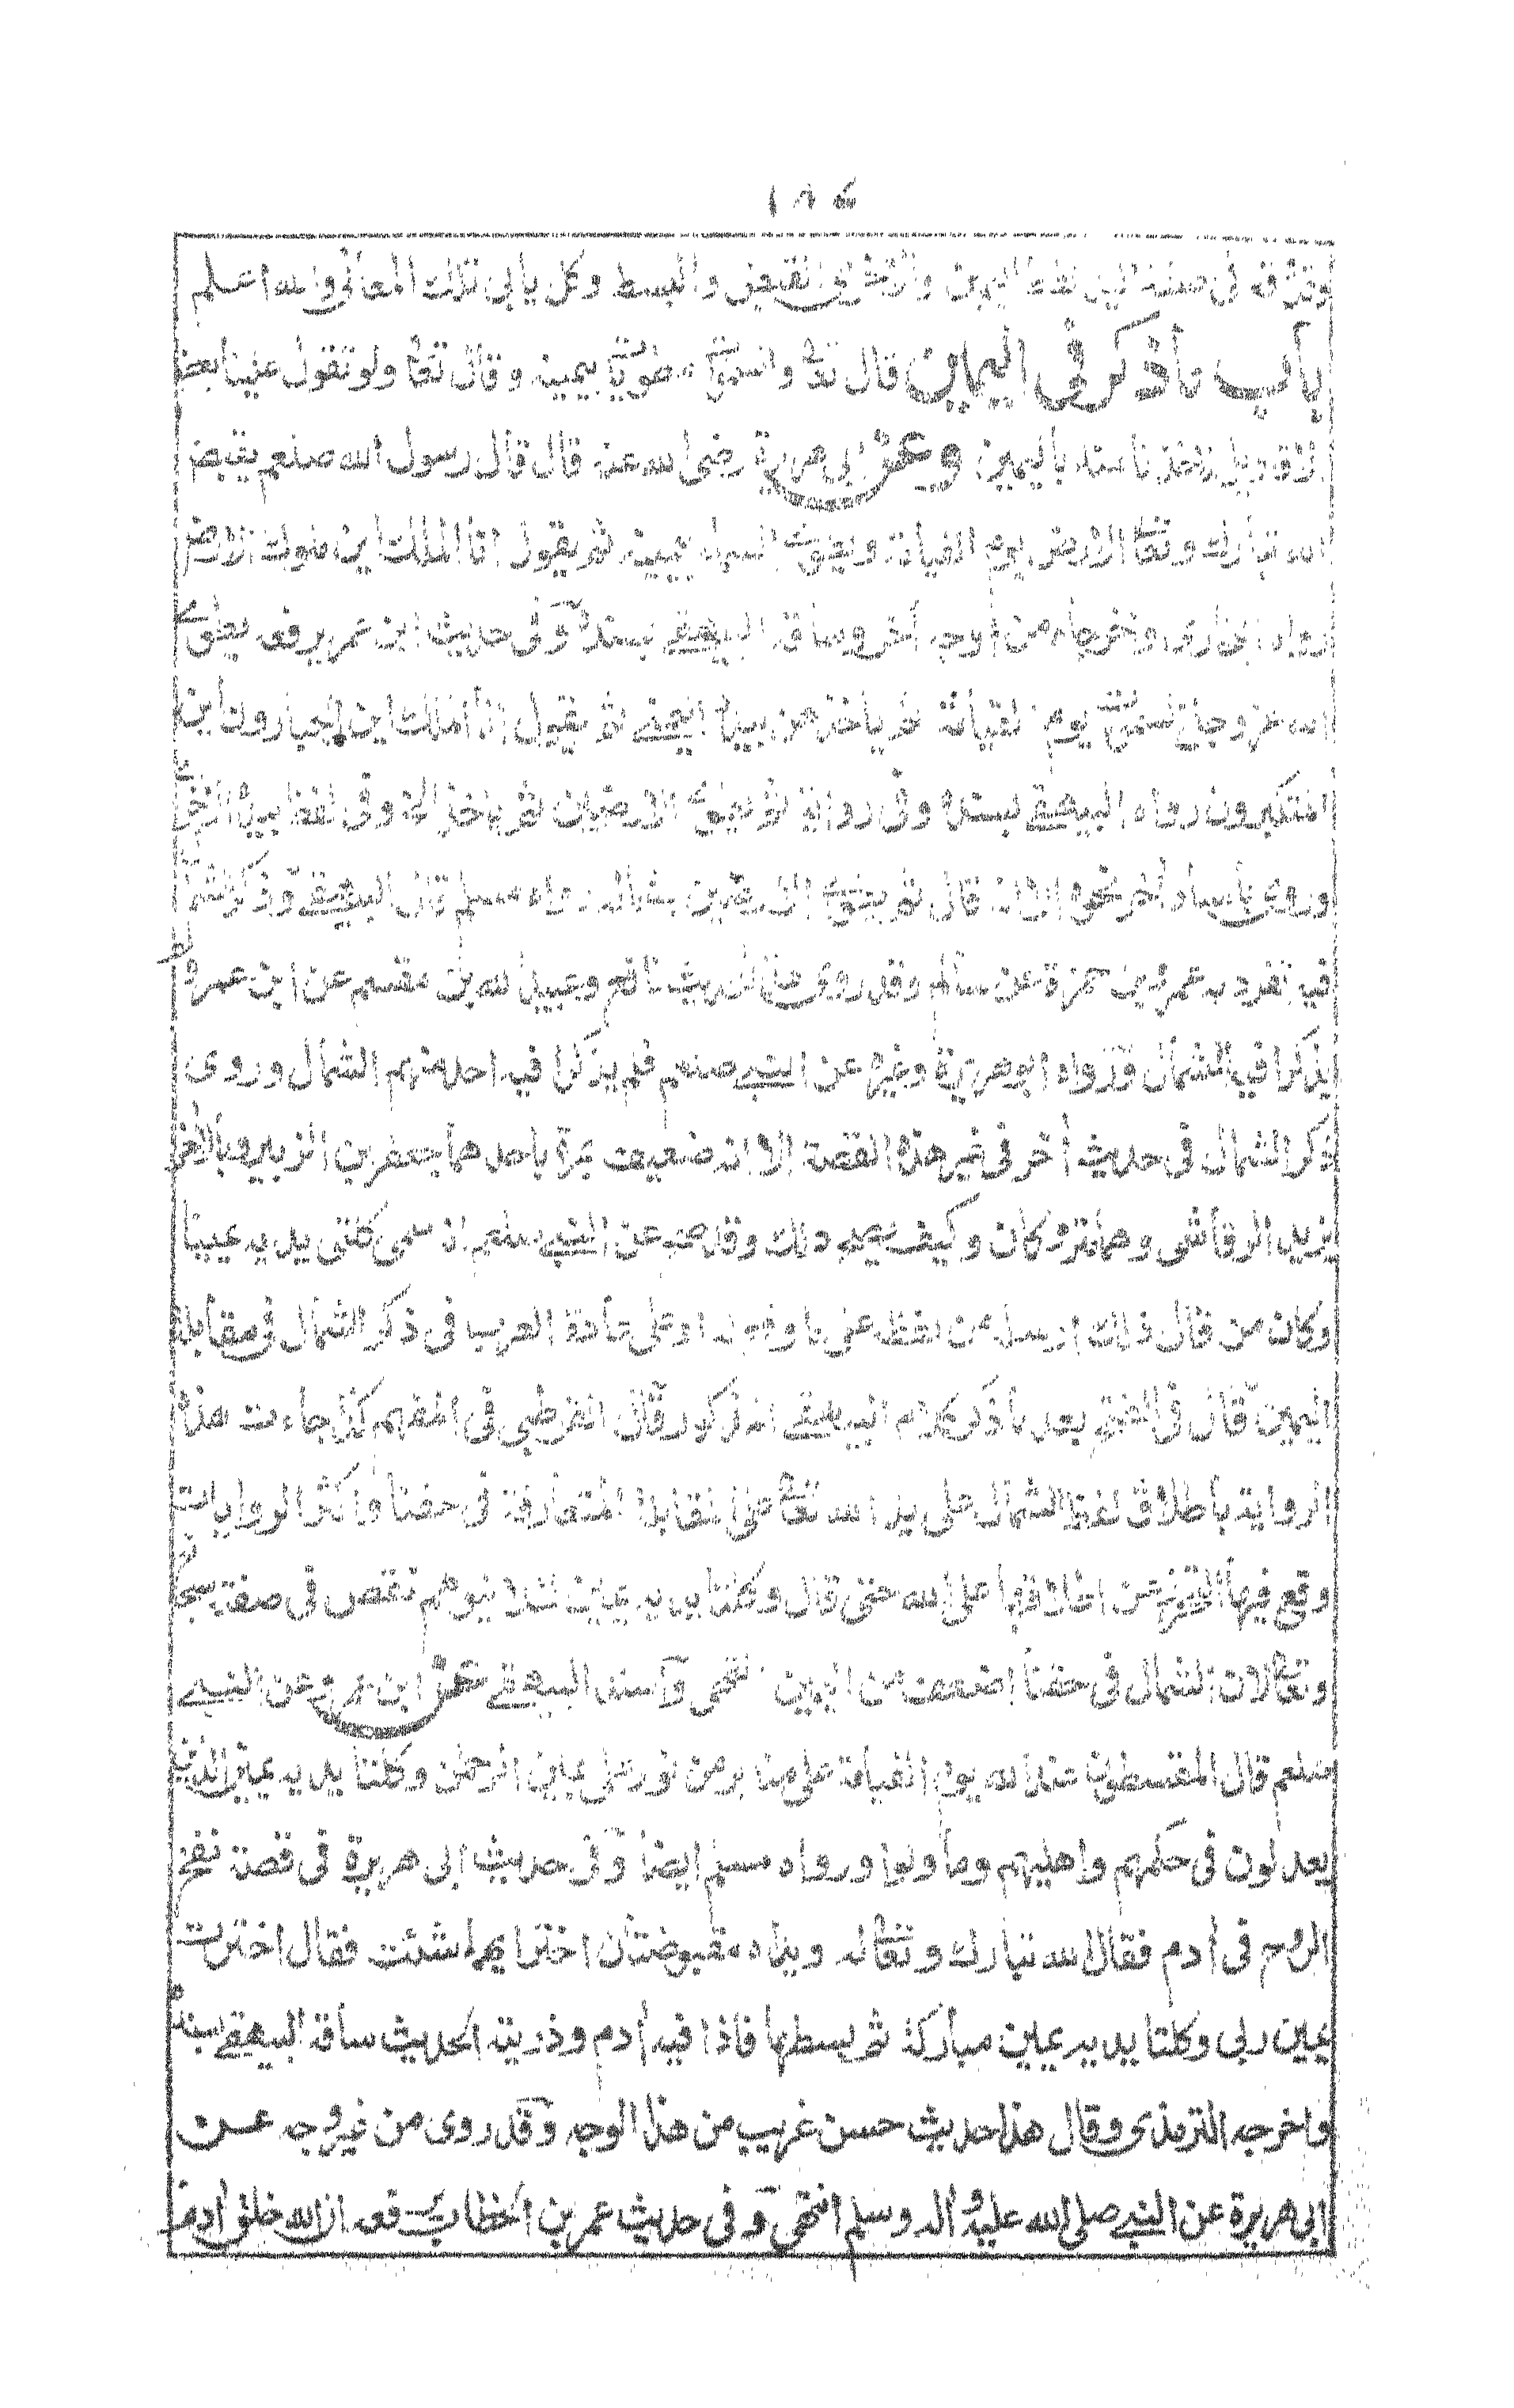 ١٨٤
وتثرقه فى صفة اليد لفظ اليمين والقبض والبسط وكل يأبى تلك المعانى والله اعلم
باب ما ذكر فى اليمين قال تعالى والسموات مطويات بيمينه وقال تعالى ولو تقول علينا بعض
الاقاويل لاخذنا منه باليمين وعن ابى هريرة رضى الله عنه قال قال رسول الله صلعم يقبض
الله تبارك وتعالى الارض يوم القيامة ويطوى السماء بيمينه ثم يقول انا الملك اين ملوك الارض
رواه البخارى وخرجاه من أوجه أخر وساقه البيهقى بسنده وفى حديث ابن عمر يرفعه يطوى
الله عز وجل السموات يوم القيامة ثم يأخذهن بيده اليمنى ثم يقول انا الملك اين الجبارون أين
المتكبرون رواه البيهقى بسنده وفى رواية ثم يطوى الارضين ثم يأخذ الخ وفى لفظ بيده الاخرى
وروى بأسناد أخر نحوه الا انه قال ثم يطوى الارضين بشماله رواه مسلم قال البيهقى وذكر الشمال
فيه تفرد به عمر بن حمزة عن سالم وقد روى هذا الحديث نافع وعبيد الله بن مقسم عن ابن عمر لم
يذكرا فيه الشمال ورواه ابو هريرة وغيره عن النبى صلعم فلم يذكرا فيه احد منهم الشمال وروى
ذكر الشمال فى حديث أخر فى غير هذه القصة الا انه ضعيف بمرة باحدهما جعفر بن الزبير وبالاخر
يزيد الرقاشى وهما متروكان وكيف يصح ذلك وقد صح عن النبى صلعم انه سمى كلتى يديه يمينا
وكان من قال ذلك ارسله من لفظه على ما وقع له او على عادة العرب فى ذكر الشمال فى مقابلة
اليمين قال فى الفتح بعد ما ذكر كلام البيهقى المذكور قال القرطبى فى المفهم كذا جاءت هذه
الرواية بأطلاق لفظ الشمال على يد الله تعالى على المقابلة المتعارفة فى حقنا وأكثر الروايات
وقع فيها التحرز عن اطلاقها على الله حتى قال وكلتا يديه يمين لئلا يتوهم نقص فى صفته سبحانه
وتعالى لان الشمال فى حقنا اضعف من اليمين انتهى وأسند البيهقى عن ابن عمرو عن النبى
صلعم قال المقسطون عند الله يوم القيامة على منابر من نور على يمين الرحمن وكلتا يديه يمين الذين
يعدلون فى حكمهم واهليهم وما ولوا ورواه مسلم ايضا وفى حديث ابى هريرة فى قصة نفخ
الروح فى أدم فقال الله تبارك وتعالى له ويداه مقبوضتان اختر ايهما شئت فقال اخترت
يمين ربى وكلتا يديه يمين مباركة ثم بسطها فاذا فيه أدم وذريته الحديث ساقه البيهقى بسنده
واخرجه الترمذى وقال هذا حديث حسن غريب من هذا الوجه وقد روى من غير وجه عن
ابى هريرة عن النبى صلى الله عليه وأله وسلم انتهى وفى حديث عمر بن الخطاب يرفعه ان الله خلق أدم